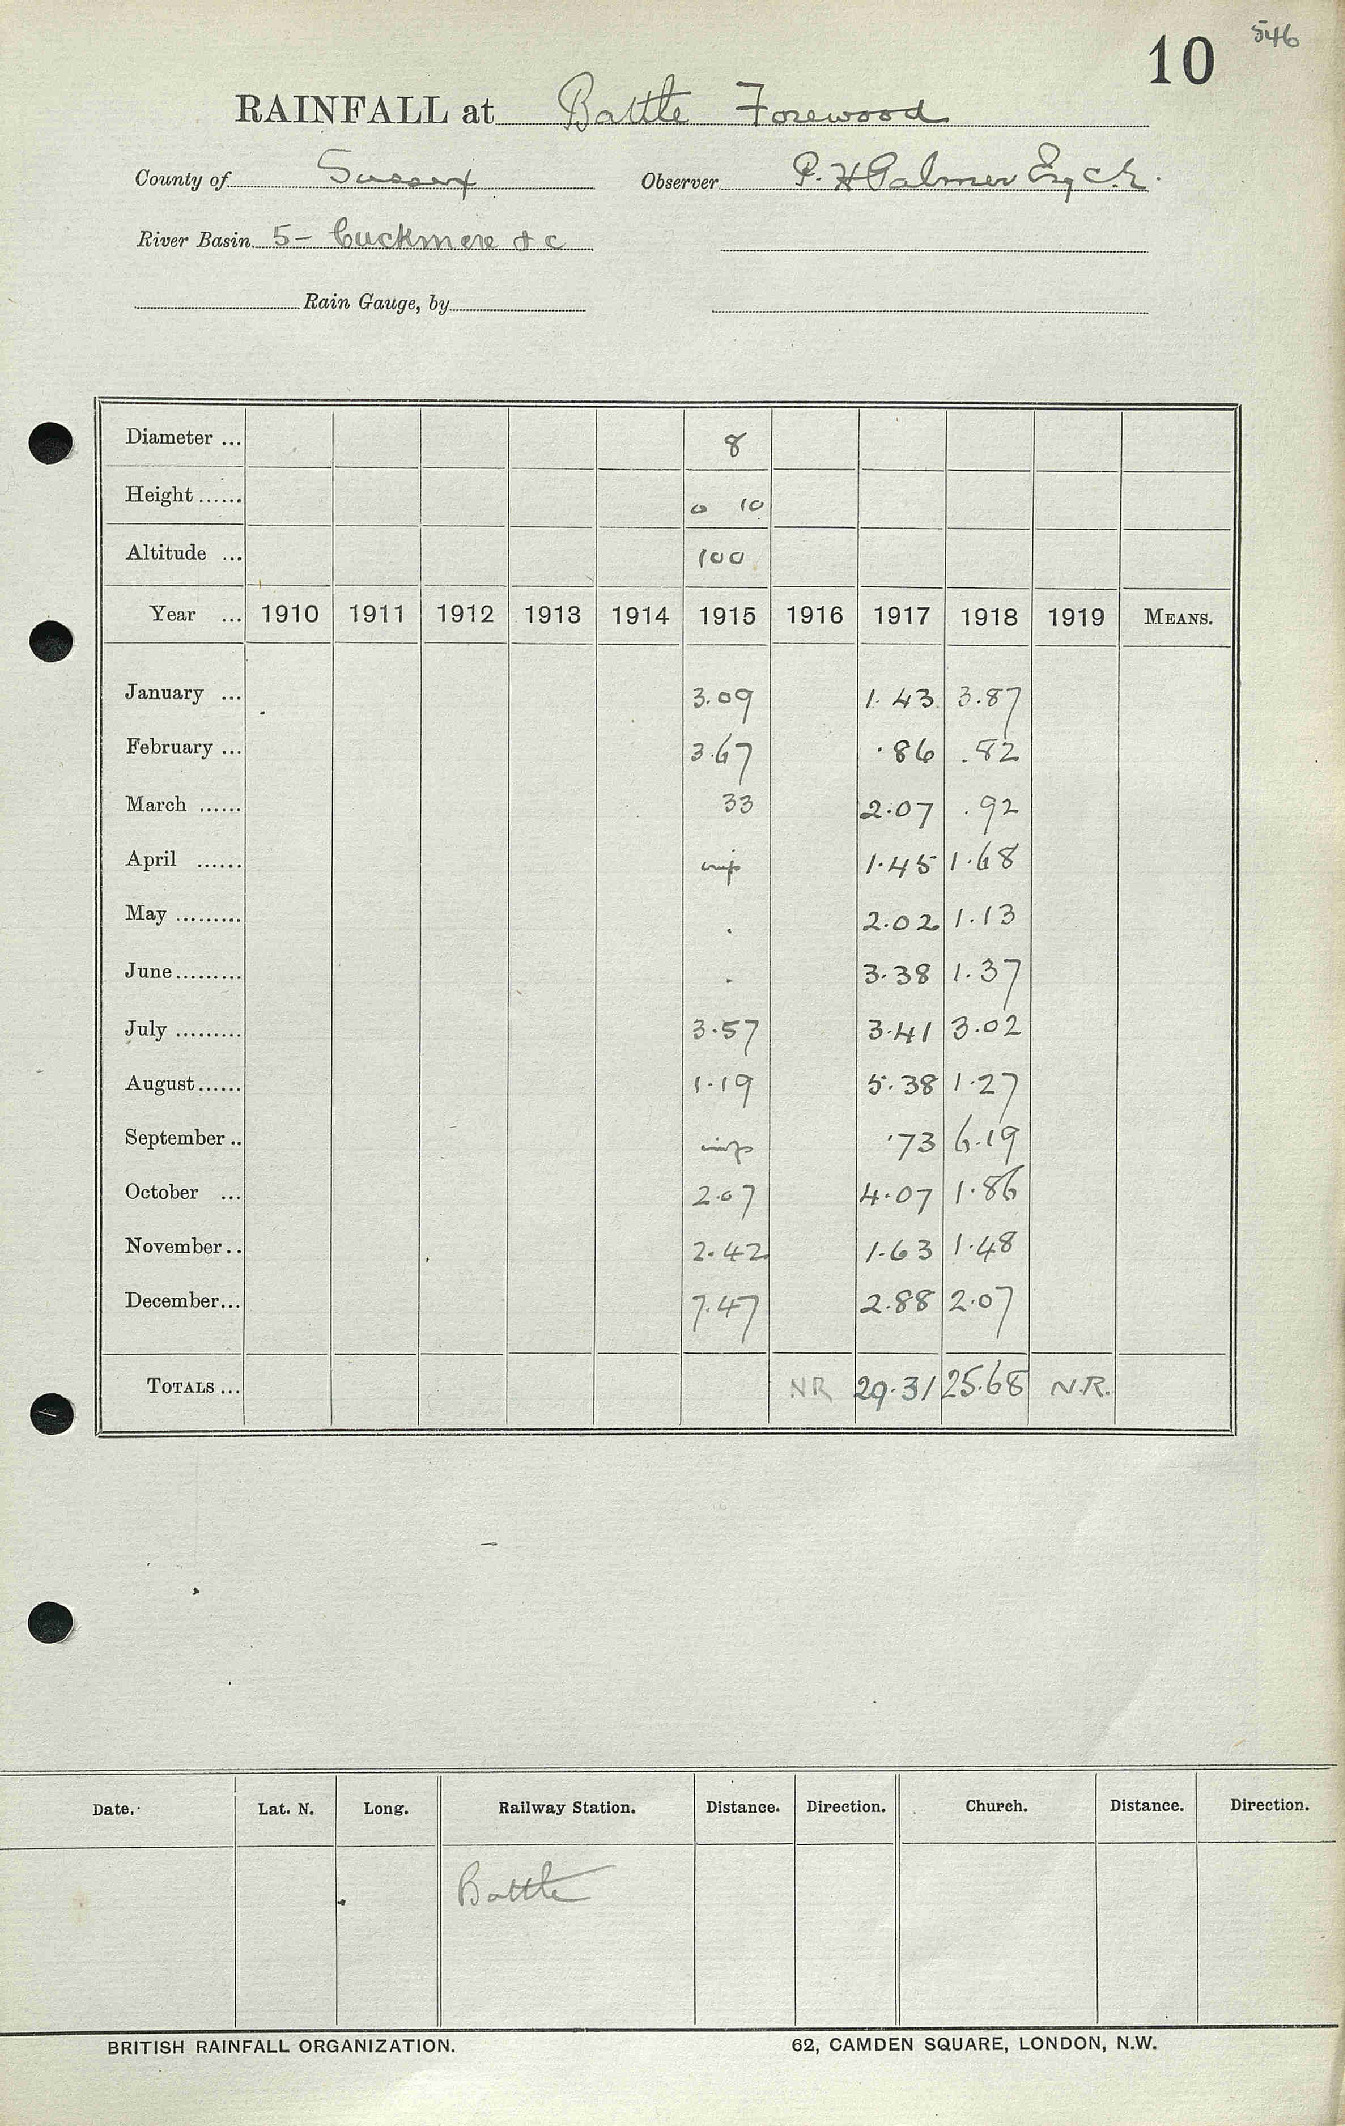 546
10
RAINFALL at Battle Forewood
County of Sussex Observer P. H Palmer Esq C.E.
River Basin 5- Cuckmere & c
Rain Gauge, by
Diameter ... 8
Height ...... 0 10
Altitude ... 100
Year ... 1910 1911 1912 1913 1914 1915 1916 1917 1918 1919 MEANS.
January ... 3.09 1.43 3.87
February ... 3.67 .86 .82
March ...... 33 2.07 .92
April ...... 1.45 1.68
May ......... . 2.02 1.13
June ......... . 3.38 1.37
July ......... 3.57 3.41 3.02
August ...... 1.19 5.38 1.27
September .. .73 6.19
October ... 2.07 4.07 1.86
November .. 2.42 1.63 1.48
December ... 7.47 2.88 2.07
TOTALS ... NR 29.31 25.68 N.R.
Date. Lat. N. Long. Railway Station. Distance. Direction. Church. Distance. Direction.
Battle
BRITISH RAINFALL ORGANIZATION. 62, CAMDEN SQUARE, LONDON, N.W.